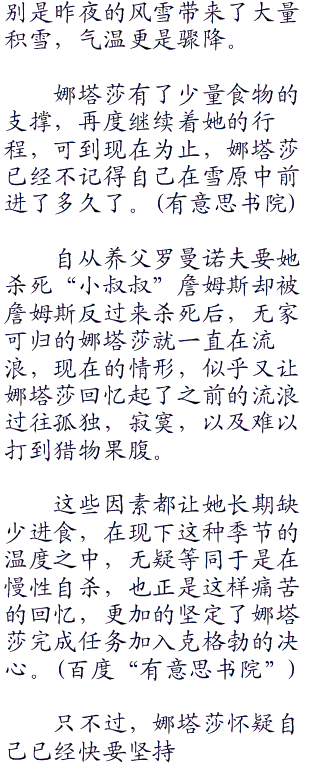 别是昨夜的风雪带来了大量
积雪，气温更是骤降。
娜塔莎有了少量食物的
支撑，再度继续着她的行
程，可到现在为止，娜塔莎
已经不记得自己在雪原中前
进了多久了。(有意思书院)
自从养父罗曼诺夫要她
杀死“小叔叔”詹姆斯却被
詹姆斯反过来杀死后，无家
可归的娜塔莎就一直在流
浪，现在的情形，似乎又让
娜塔莎回忆起了之前的流浪
过往孤独，寂寞，以及难以
打到猎物果腹。
这些因素都让她长期缺
少进食，在现下这种季节的
温度之中，无疑等同于是在
慢性自杀，也正是这样痛苦
的回忆，更加的坚定了娜塔
莎完成任务加入克格勃的决
心。(百度“有意思书院”)
只不过，娜塔莎怀疑自
己已经快要坚持